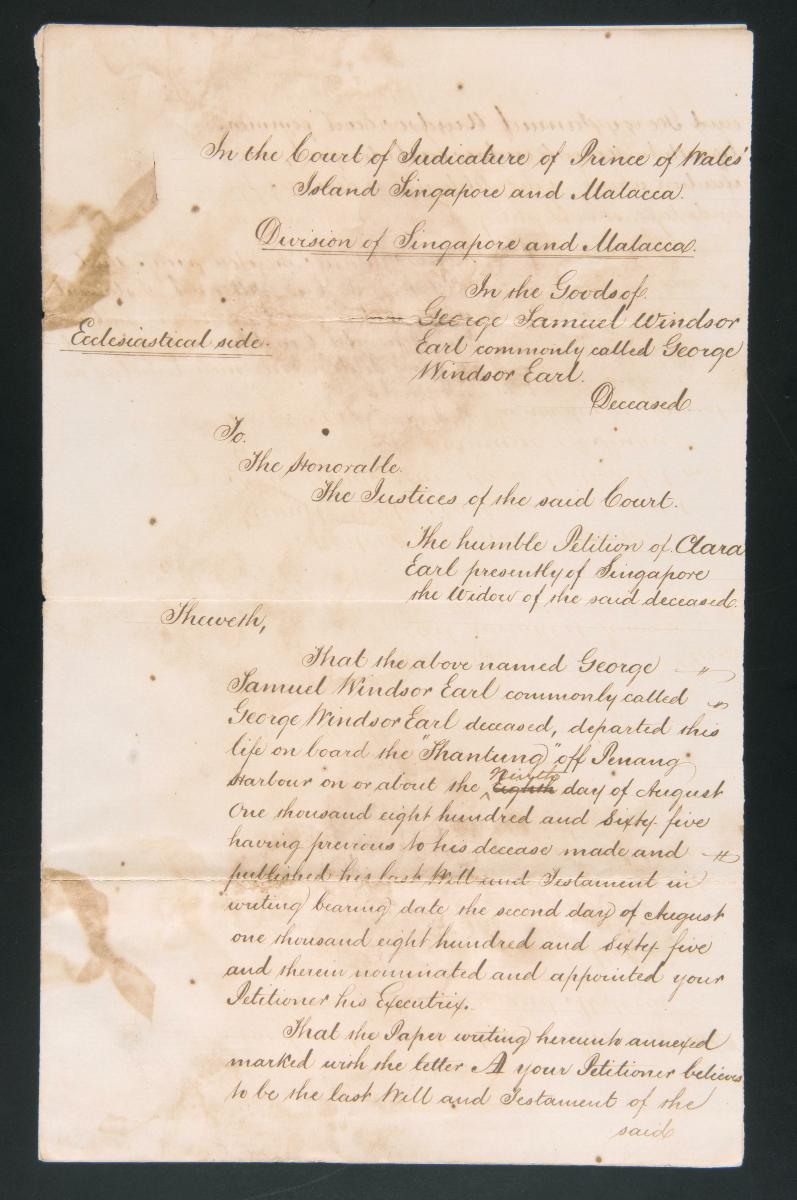 In the Court of Judicature of Prince of Wales'
Island Singapore and Malacca.
Division of Singapore and Malacca.
In the Goods of
George Samuel Windsor
Ecclesiastical side.
Earl commonly called George
Windsor Earl.
Deceased
To.
The Honorable.
The Justices of the said Court.
The humble Petition of Clara
Earl presently of Singapore
the Widow of the said deceased.
Sheweth,
That the above named George "
Samuel Windsor Earl commonly called "
George Windsor Earl deceased, departed this
life on board the "Shantung" off Penang
Ninth
Harbour on or about the ^ eighth day of August
One thousand eight hundred and Sixty five
having previous to his decease made and "
published his last Will and Testament in
writing bearing date the second day of August
one thousand eight hundred and Sixty five
and therein nominated and appointed your
Petitioner his Executrix.
That the Paper writing hereunto annexed
marked with the letter A your Petitioner believes
to be the last Will and Testament of the
said